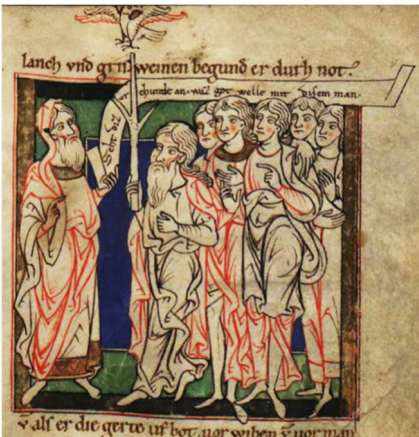 lanch vnd gris weinen begund er durh not.
Seht diz vrchunde an. waz got welle mit disem man.
v̄ als er die gerte uf bot. uor wiben v̄ uor man